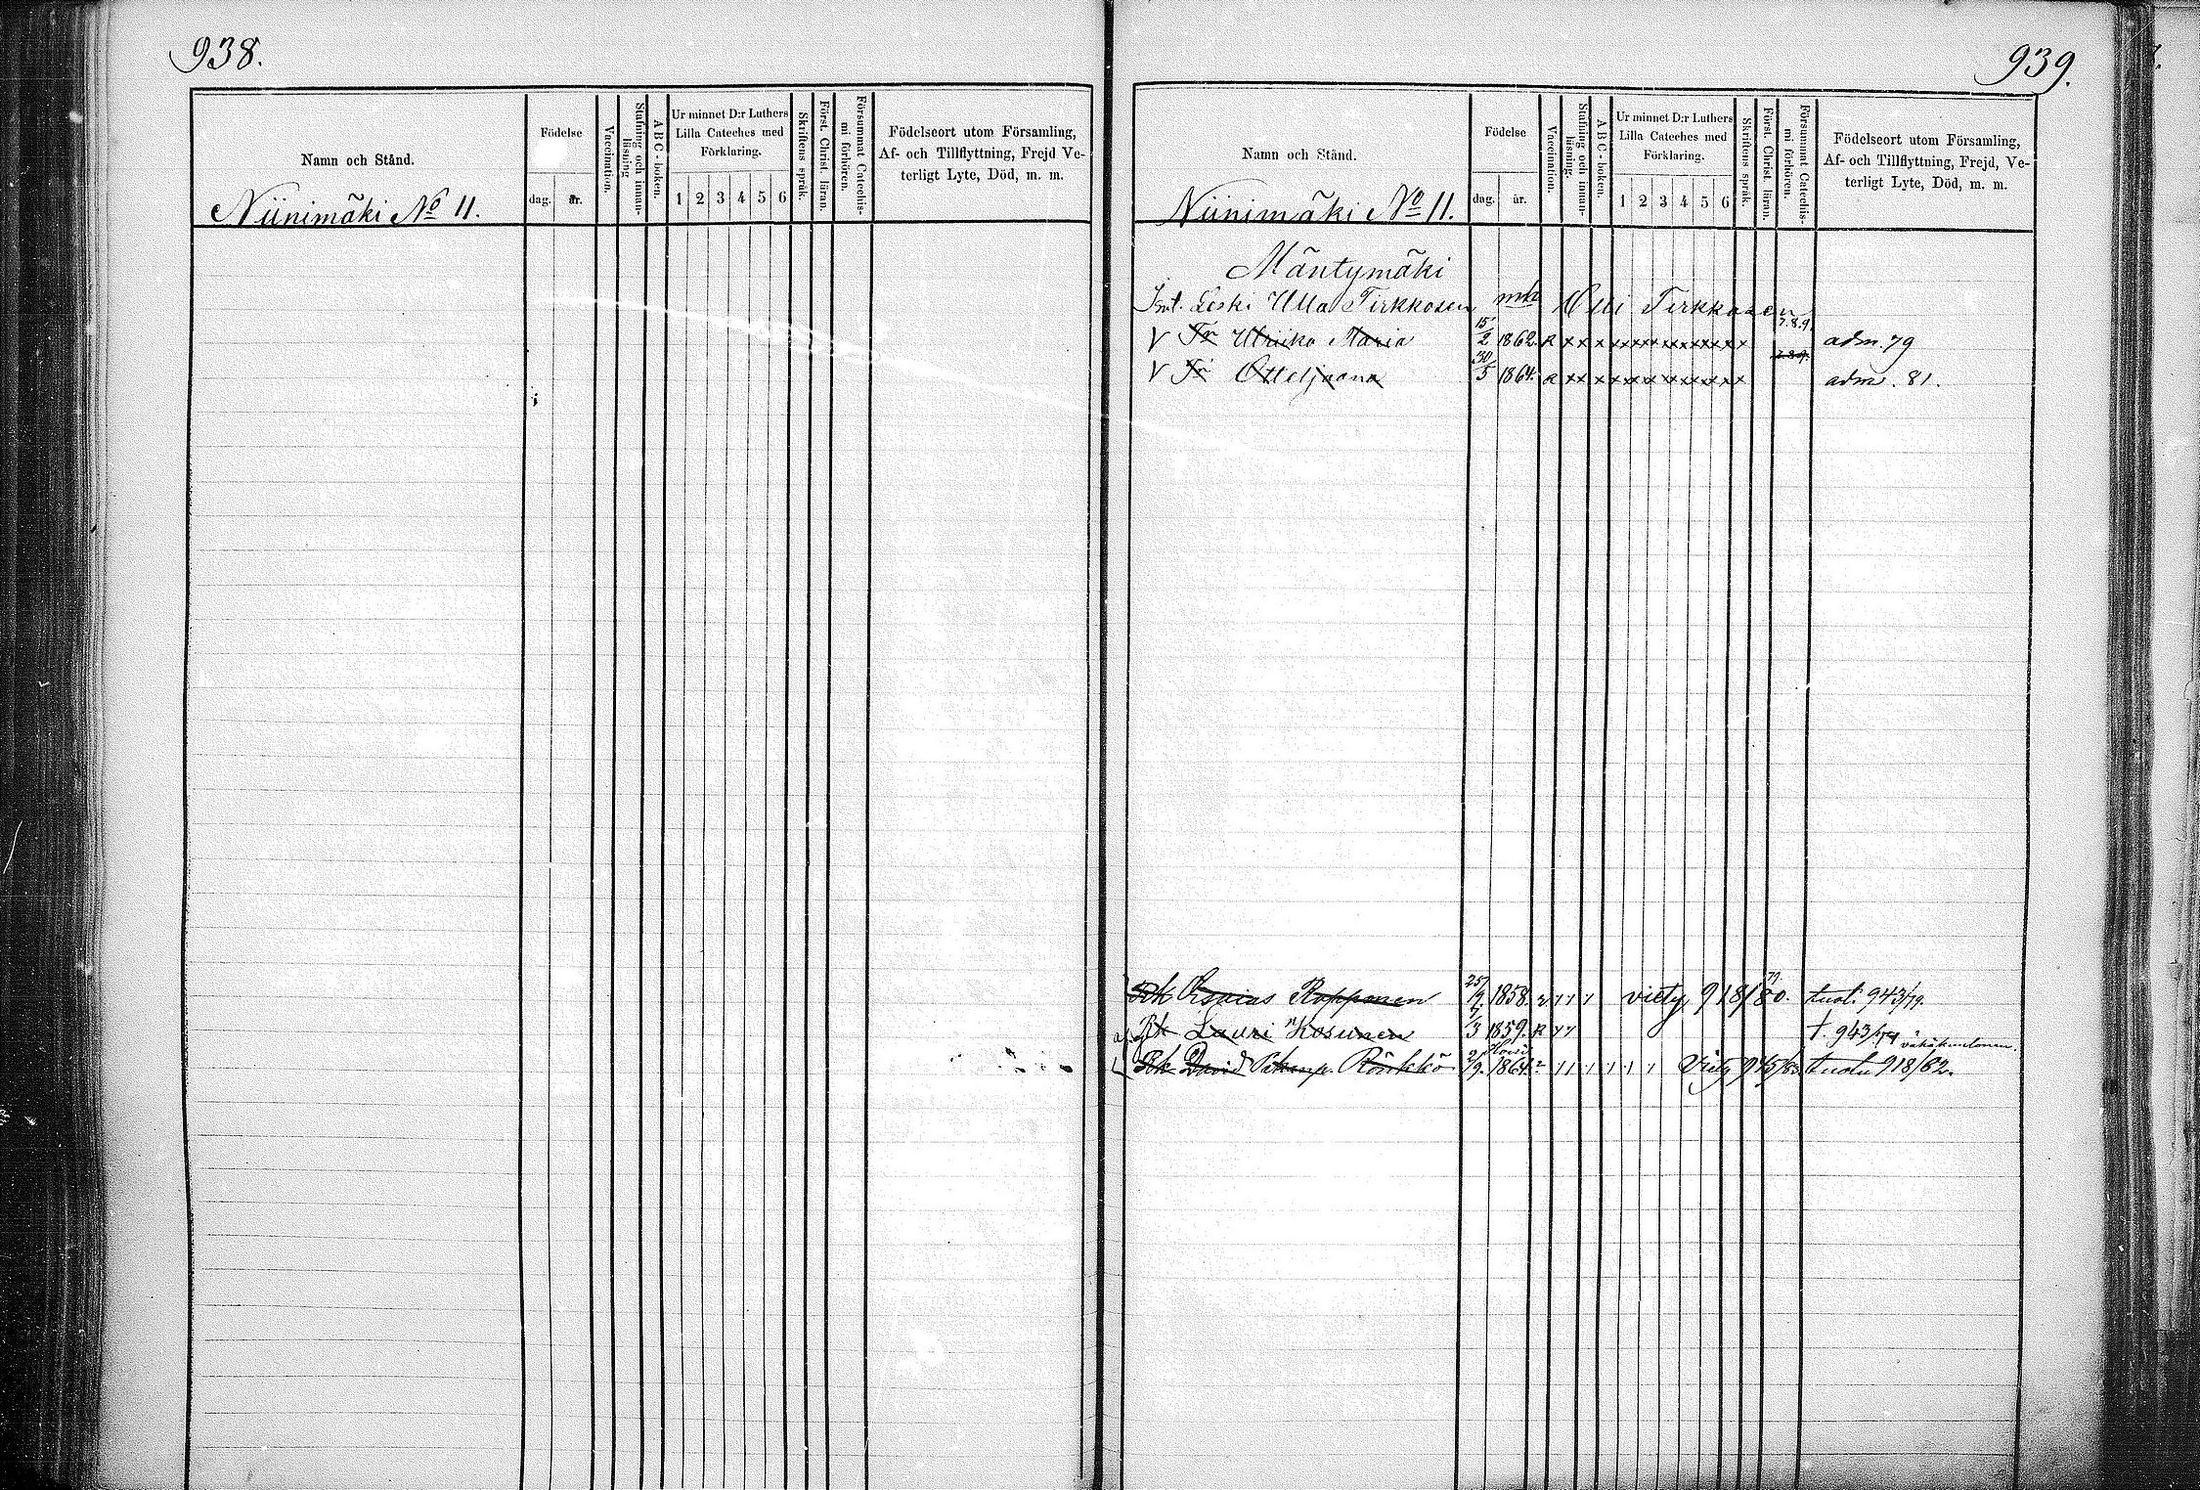 938.
Namn och Stånd.
Födelse
dag. år.
Vaccination.
Stafning och innan-läsning
A B C - boken.
Ur minnet D:r Luthers
Lilla Cateches med
Förklaring.
1 2 3 4 5 6
Skriftens språk.
Först. Christ. läran.
Försummat Catechis-mi förhören.
Födelseort utom Församling,
Af- och Tillflyttning, Frejd Ve-
terligt Lyte, Död, m. m.
Niinimäki No 11.
939.
Namn och Stånd.
Födelse
dag. år.
Vaccination.
Stafning och innan-läsning.
A B C - boken.
Ur minnet D:r Luthers
Lilla Cateches med
Förklaring.
1 2 3 4 5 6
Skriftens språk.
Först. Christ. läran.
Försummat Catechis-mi förhören.
Födelseort utom Församling,
Af- och Tillflyttning, Frejd, Ve-
terligt Lyte, Död, m. m.
Niinimäki No 11.
Mäntymäki
Leski Ulla Tirkkosen mk Olli Tirkkosen
V Tr Ulriika Maria 15/2 1862. R x x x x x x x x x x x x x 7.8.9. adm. 79
V Tr Otteljaana 30/5 1864. R x x x x x x x x x x x adm. 81.
Rk Esaias Ropponen 25/9. 1858. viety 918/80. tuoli 943/79.
Rk Lauri Kosunen 7/3 1859. R t. 943/74
Rk David Röntkkö 2/9. 1864. Viety 945/83 tuotu 918/82.